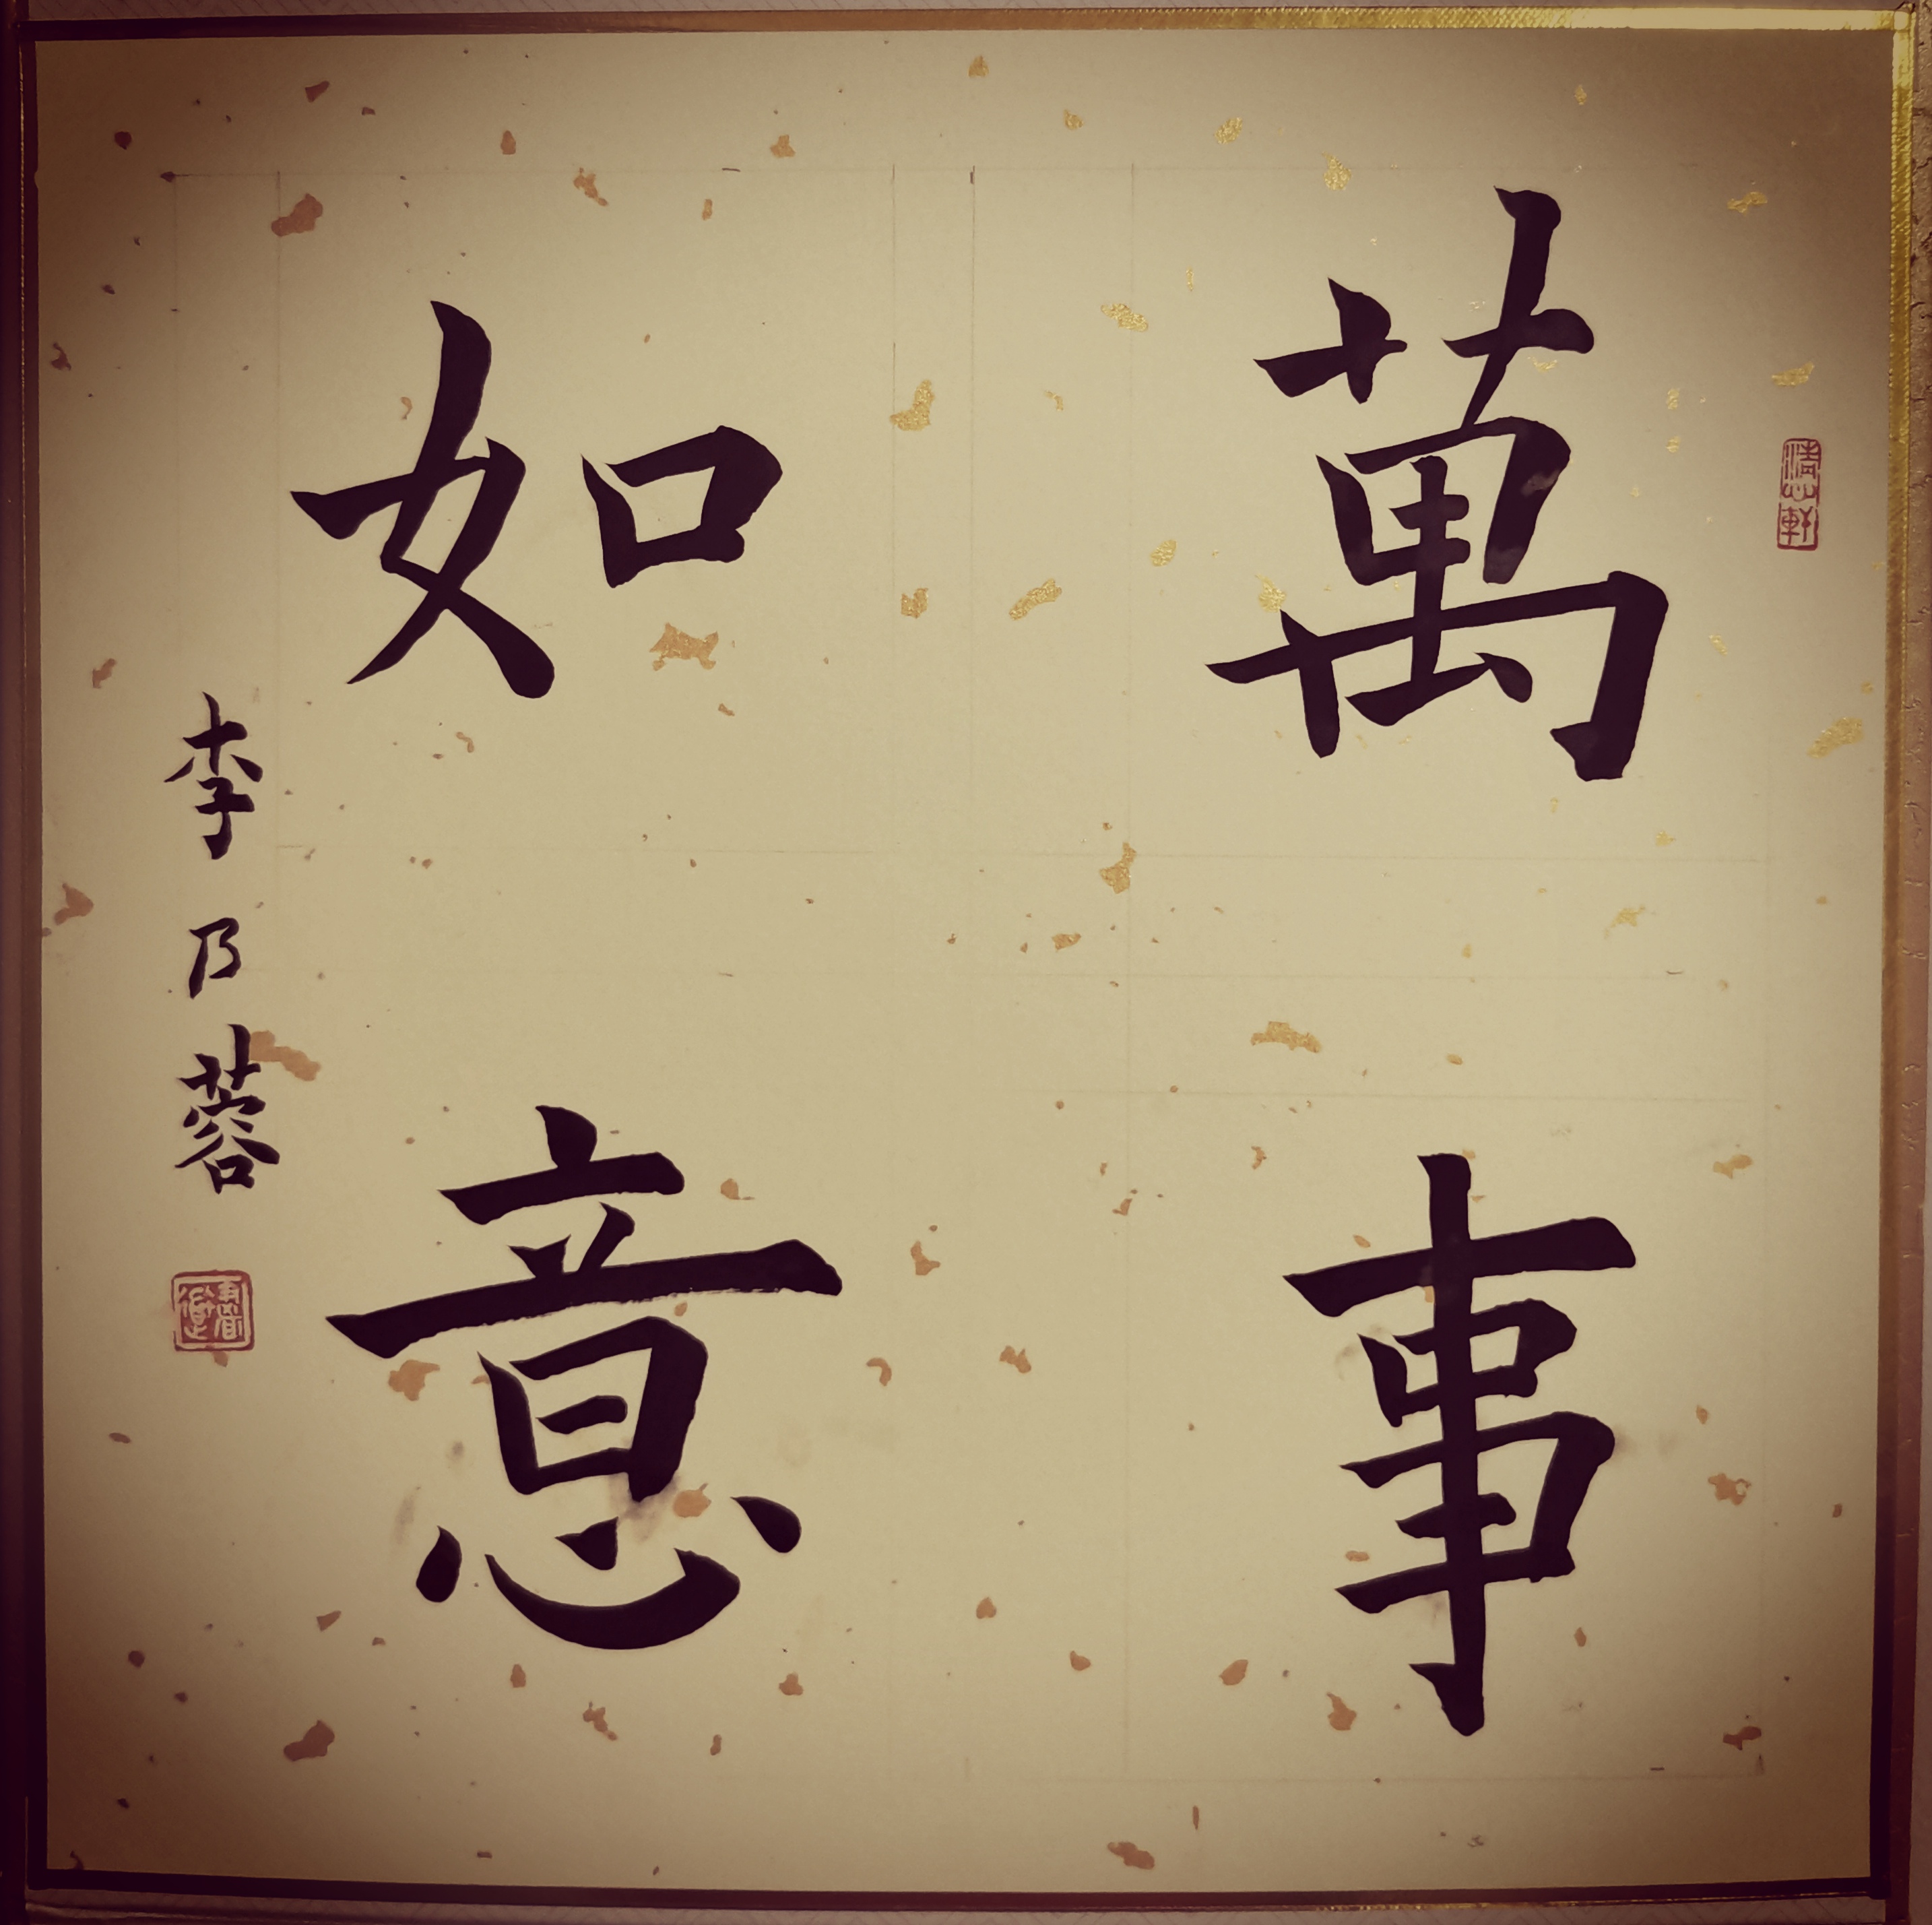 萬事
如意
李乃蓉